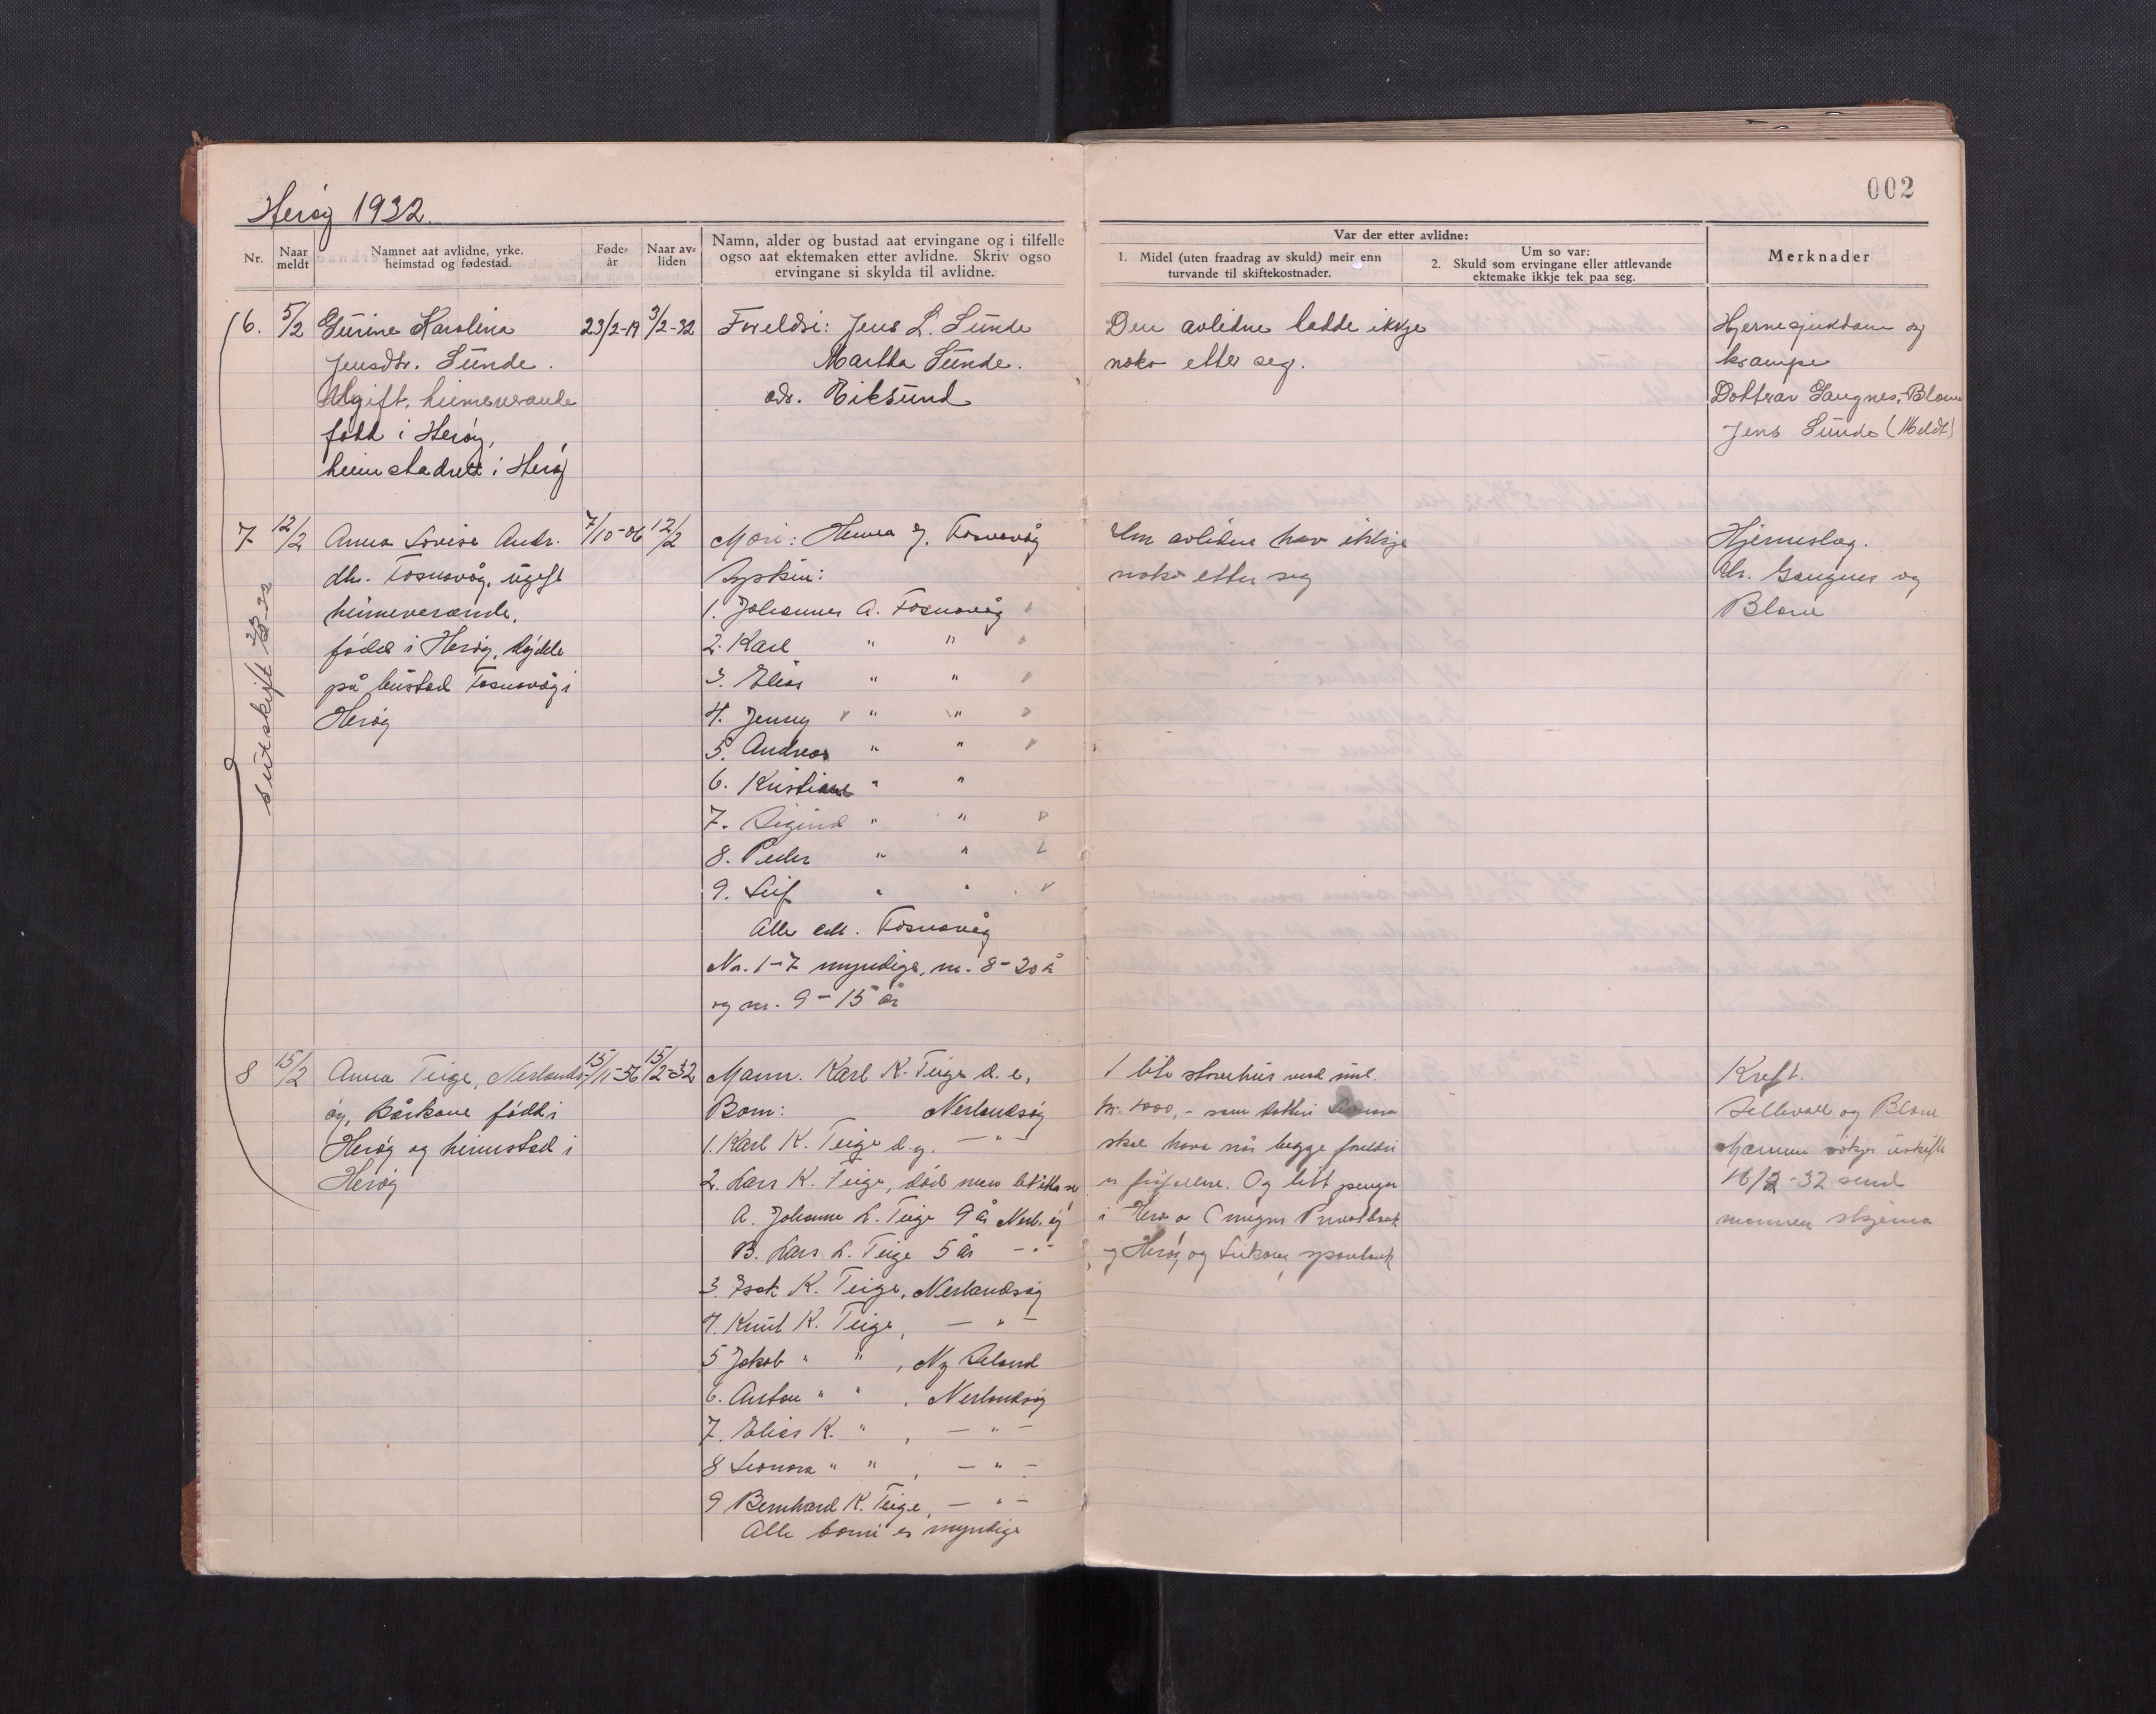 Herøy 1932.
002
Nr.
Naar meldt
Namnet aat avlidne, yrke.
heimstad og fødestad.
Føde-
år
Naar av-
liden
Namn, alder og bustad aat ervingane og i tilfelle
ogso aat ektemaken etter avlidne. Skriv ogso
ervingane si skylda til avlidne.
Var der etter avlidne:
1. Midel (uten fraadrag av skuld) meir enn
turvande til skiftekostnader.
Um so var:
2. Skuld som ervingane eller attlevande
ektemake ikkje tek paa seg.
Merknader
6. 5/2 Gurine Karolina 23/2-19 3/2-32
Jensdtr. Sunde.
Ugift, heimeverande
født i Herøy,
heimstadrett i Herøy
Foreldri: Jens L. Sunde
Martha Sunde.
adr. Eiksund
Den avlidne ladde ikkje
noko etter seg.
Hjernesjukdam og
krampe
Doktarar Gangnes, Blom
Jens Sunde (Meldt)
Sut. skift
7 12/2 Anna Lovise Andr. 7/10-06 12/2
dtr. Fosnavåg, ugift
heimeverande,
fødd i Herøy, døydde
på bustad Fosnavåg i
Herøy
Mori: Fosnavåg
Syskin:
1. Johannes A. Fosnavåg
2. Karl " "
3. Elias " "
4. Jenny " "
5. Andreas " "
6. Kristiane " "
7. " "
8. Peder " "
9. Leif " "
Alle adr. Fosnavåg
Nr. 1-7 myndige, nr. 8-20 år
og nr. 9-15 år
avlidne hev ikkje
noko etter seg
Hjerneslag.
Dr. Gangnes og
Blom
8 15/2 Anna Teige, Nerlands- 15/11-56 15/2-32
øy, Kårkone fødd i
Herøy og heimstad i
Herøy
Mann. Karl K. Teige d. e.
Born: Nerlandsøy
1. Karl K. Teige d. y. — " —
2. Lars K. Teige, død men let etter se
A. Johanne L. Teige 9 år Nerl. øy
B. Lars L. Teige 5 år — " —
3. Isak K. Teige, Nerlandsøy
4. Knut K. Teige, — " —
5 Jakob " " , Ny Seland
6. Anton " " , Nerlandsøy
7. Elias K. " , — " —
8 Leonora " " , — " —
9 Bernhard K. Teige, — " —
Alle borni er myndige
1 lite stovehus verd
kr. 1000,- som dotteri
skal hava når begge foreldri
er fråfallne. Og litt pengar
i Privatbank
og Herøy og Leikong sparebank
Kreft.
Sellevoll og Blom
Mannen ynskjer uskifte
16/2-32 send
mannen skjema